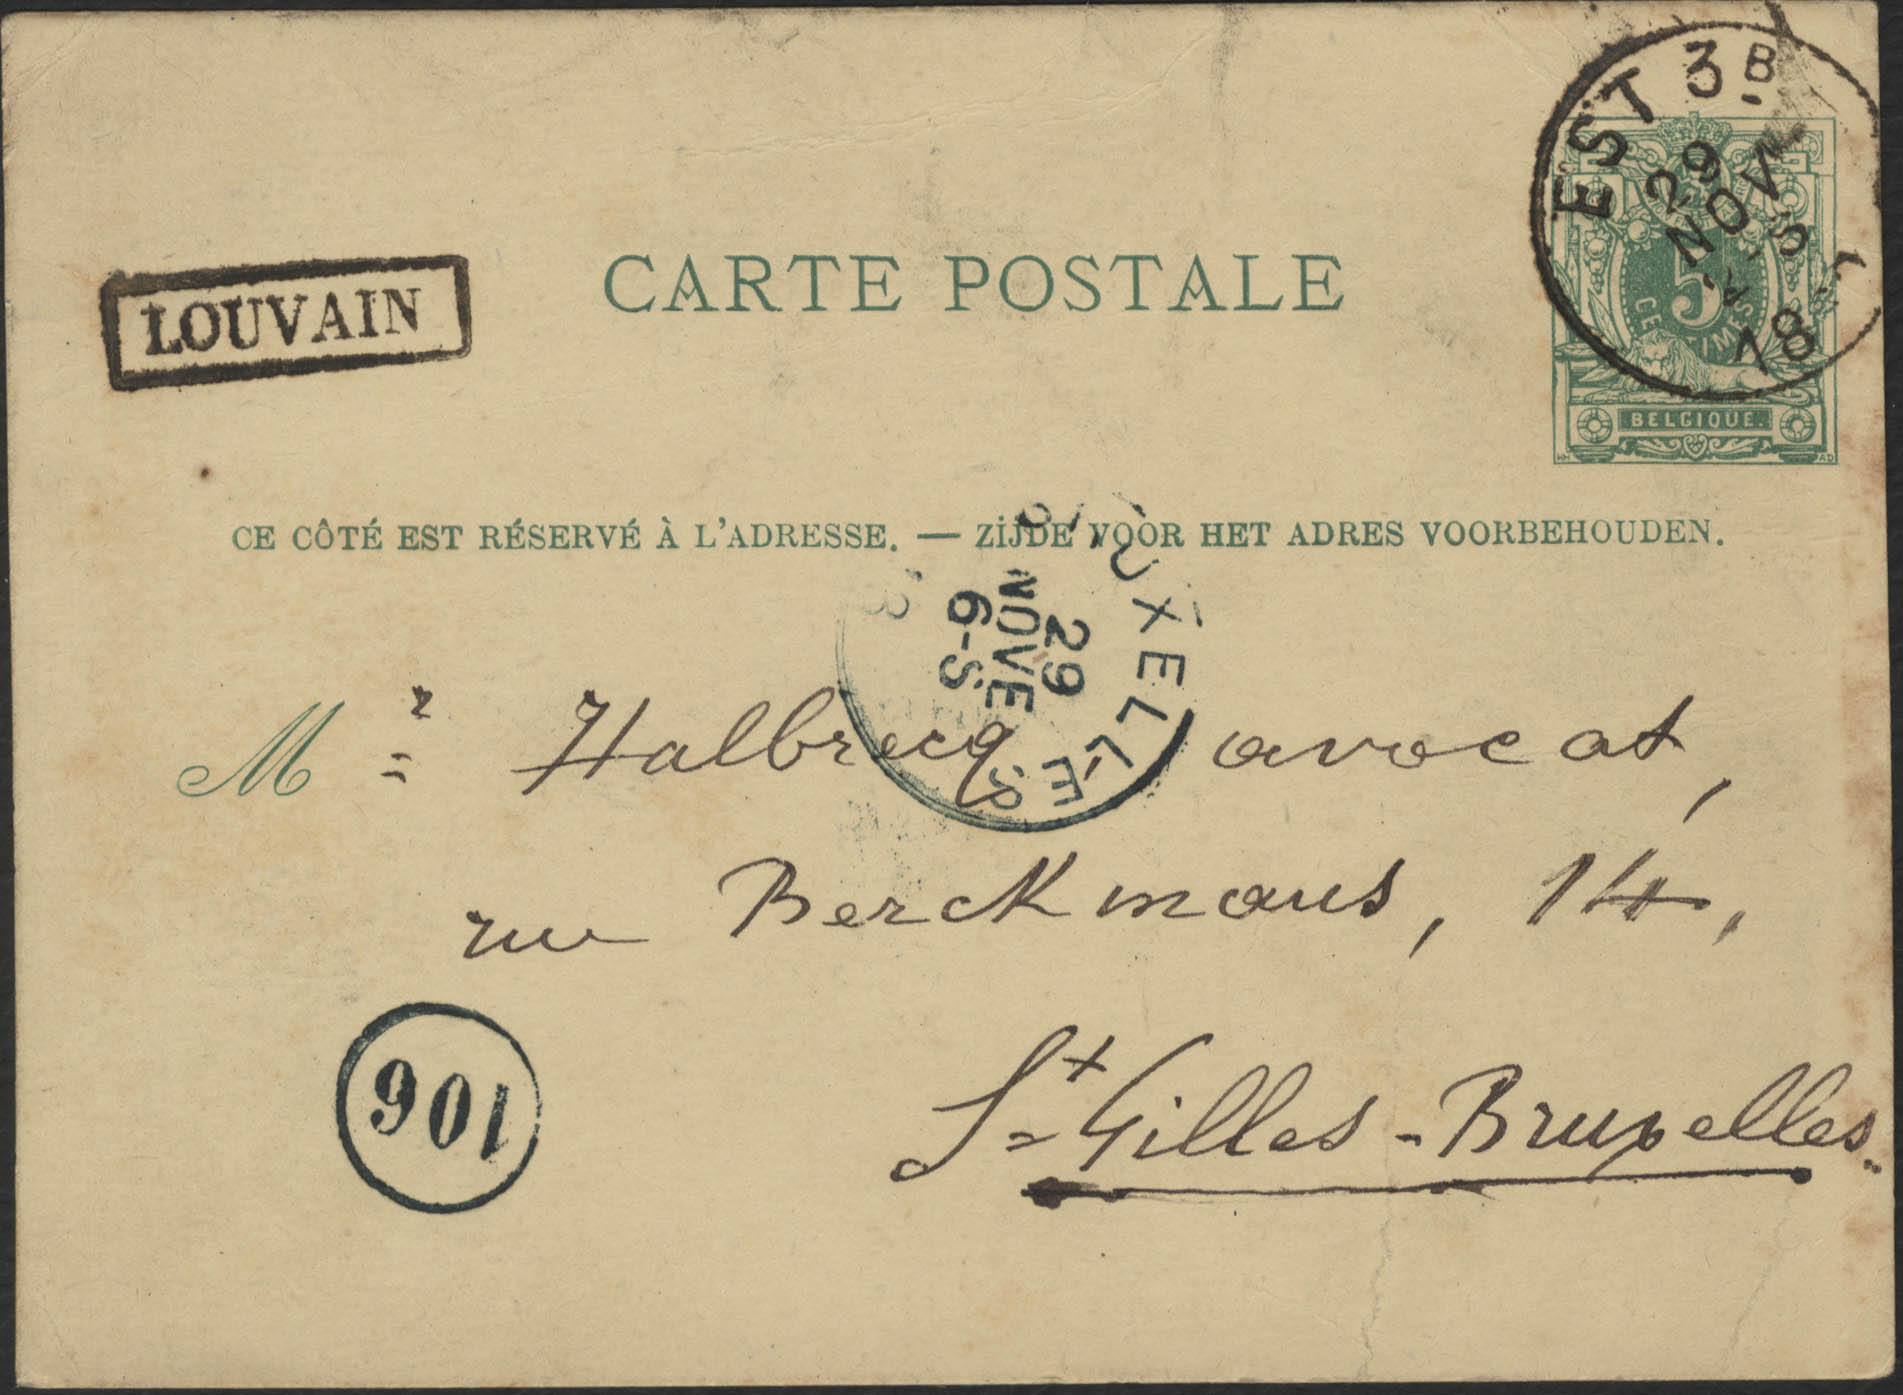 EST 3B
29
NOV
5
CENTIMES
18
BELGIQUE.
HH AD
LOUVAIN
CARTE POSTALE
CE CÔTÉ EST RÉSERVÉ À L'ADRESSE. — ZIJDE VOOR HET ADRES VOORBEHOUDEN.
UXELLES
29
NOVE
6-S
Mr Halbrecq avocat,
rue Berckmans, 14,
St Gilles-Bruxelles.
106